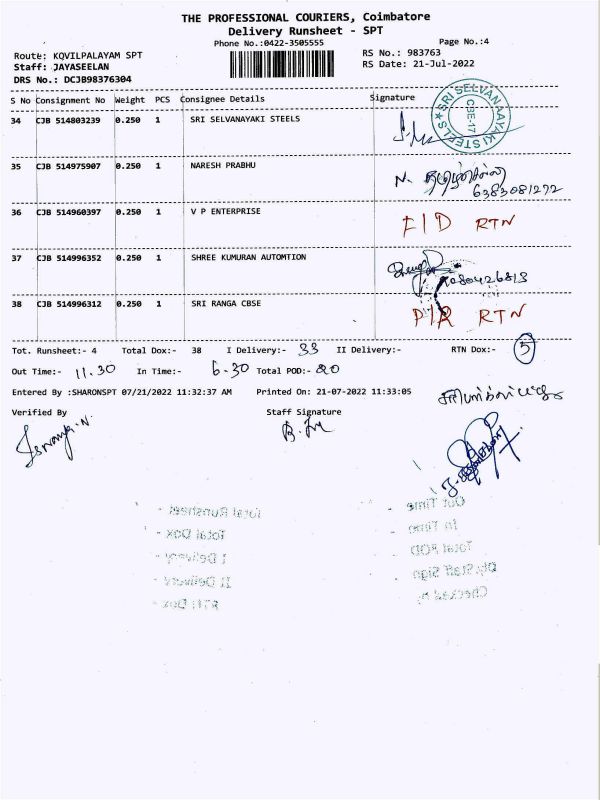 THE PROFESSIONAL COURIERS, Coimbatore
Delivery Runsheet - SPT
Phone No.:0422-3505555 Page No.:4
Route: KQVILPALAYAM SPT RS No.: 983763
Staff: JAYASEELAN RS Date: 21-Jul-2022
DRS No.: DCJB98376304
S No Consignment No Weight PCS Consignee Details Signature
34 CJB 514803239 0.250 1 SRI SELVANAYAKI STEELS
SRI SELVANAAYAKI STEELS
CBE-17
35 CJB 514975907 0.250 1 NARESH PRABHU N.
6383081272
36 CJB 514960397 0.250 1 V P ENTERPRISE F/D RTN
37 CJB 514996352 0.250 1 SHREE KUMURAN AUTOMTION
38 CJB 514996312 0.250 1 SRI RANGA CBSE P/R RTN
Tot. Runsheet:- 4 Total Dox:- 38 I Delivery:- 33 II Delivery:- RTN Dox:- 5
Out Time:- 11.30 In Time:- 6-30 Total POD:- 20
Entered By :SHARONSPT 07/21/2022 11:32:37 AM Printed On: 21-07-2022 11:33:05
Verified By Staff Signature
Total Runsheet - Out Time -
Total Dox - In Time -
I Delivery - Total POD -
II Delivery - Dly.Staff Sign -
RTN Dox - Checked by